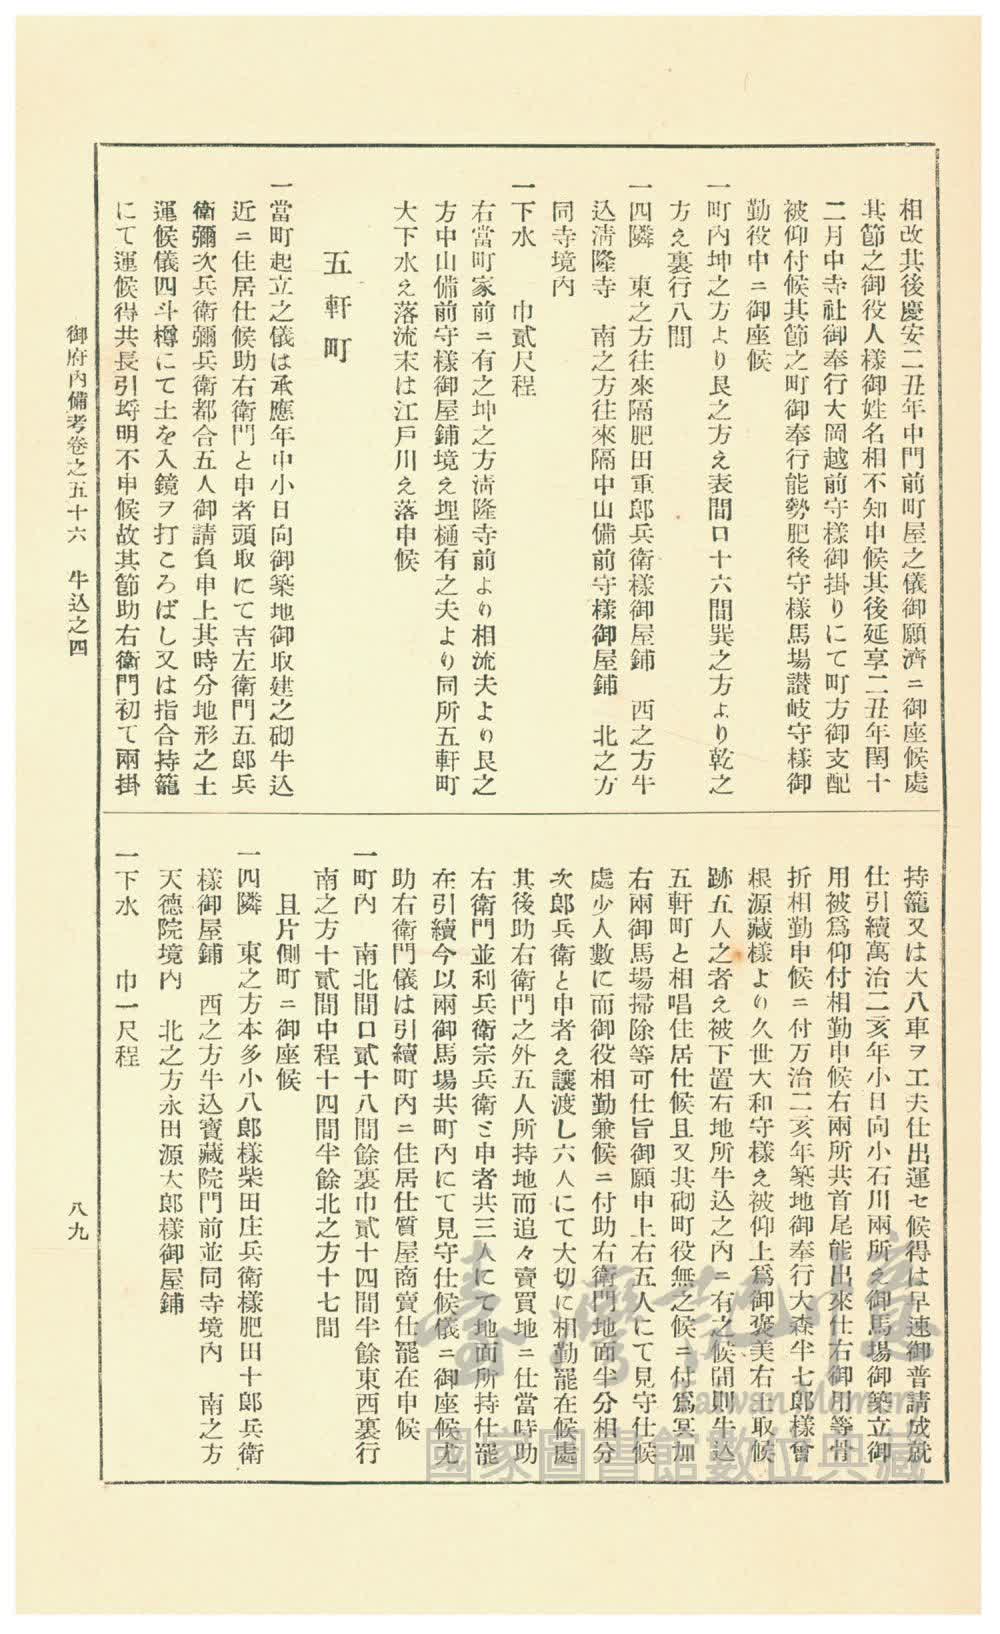 相改其後慶安二丑年中門前町屋之儀御願濟ニ御座候處
其節之御役人樣御姓名相不知申候其後延享二丑年閏十
二月中寺社御奉行大岡越前守樣御掛りにて町方御支配
被仰付候其節之町御奉行能勢肥後守樣馬場讃岐守樣御
勤役中ニ御座候
一町内坤之方より艮之方え表間口十六間巽之方より乾之
方え裏行八間
一四隣　東之方往來隔肥田重郎兵衛樣御屋鋪　西之方牛
込淸隆寺　南之方往來隔中山備前守樣御屋鋪　北之方
同寺境内
一下水　巾貳尺程
右當町家前ニ有之坤之方淸隆寺前より相流夫より艮之
方中山備前守樣御屋鋪境え埋樋有之夫より同所五軒町
大下水え落流末は江戸川え落申候
五軒町
一當町起立之儀は承應年中小日向御築地御取建之砌牛込
近ニ住居仕候助右衛門と申者頭取にて吉左衛門五郎兵
衛彌次兵衛彌兵衛都合五人御請負申上其時分地形之土
運候儀四斗樽にて土を入鏡ヲ打ころばし又は指合持籠
にて運候得共長引埒明不申候故其節助右衛門初て兩掛
持籠又は大八車ヲ工夫仕出運セ候得は早速御普請成就
仕引續萬治二亥年小日向小石川兩所え御馬場御築立御
用被爲仰付相勤申候右兩所共首尾能出來仕右御用等骨
折相勤申候ニ付万治二亥年築地御奉行大森半七郎樣曾
根源藏樣より久世大和守樣え被仰上爲御褒美右土取候
跡五人之者え被下置右地所牛込之内ニ有之候間則牛込
五軒町と相唱住居仕候且又其砌町役無之候ニ付爲冥加
右兩御馬場掃除等可仕旨御願申上右五人にて見守仕候
處少人數に而御役相勤兼候ニ付助右衛門地面半分相分
次郎兵衛と申者え讓渡し六人にて大切に相勤罷在候處
其後助右衛門之外五人所持地而追々賣買地ニ仕當時助
右衛門並利兵衛宗兵衛と申者共三人にて地面所持仕罷
在引續今以兩御馬場共町内にて見守仕候儀ニ御座候尤
助右衛門儀は引續町内ニ住居仕質屋商賣仕罷在申候
一町内　南北間口貳十八間餘裏巾貳十四間半餘東西裏行
南之方十貳間中程十四間半餘北之方十七間
且片側町ニ御座候
一四隣　東之方本多小八郎樣柴田庄兵衛樣肥田十郎兵衛
樣御屋鋪　西之方牛込寶藏院門前並同寺境内　南之方
天德院境内　北之方永田源大郎樣御屋鋪
一下水　巾一尺程
御府内備考卷之五十六　牛込之四
八九
臺灣記憶
Taiwan Memory
國家圖書館數位典藏